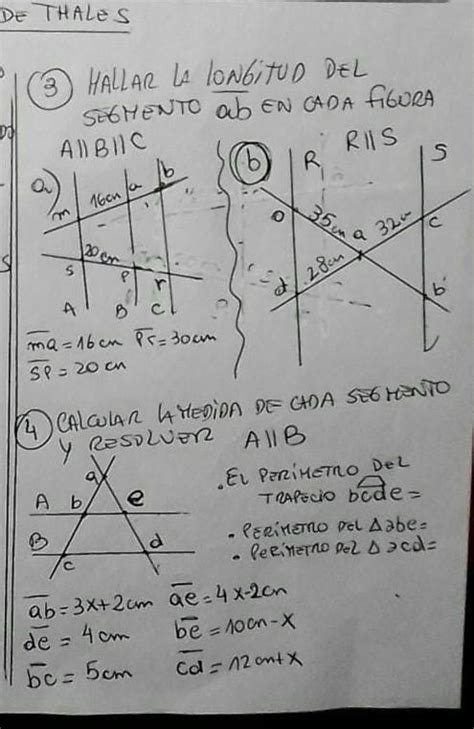 DE THALES
③ HALLAR LA LONGITUD DEL
SEGMENTO ab EN CADA FIGURA
A||B||C
a)
m 16cm a b
s 20cm p r
A B C
ma = 16cm pr = 30cm
sp = 20 cm
b
R R||S S
o 35cm a 32cm c
d 28cm b
④ CALCULAR LA MEDIDA DE CADA SEGMENTO
y RESOLVER A||B
a
A b e
B c d
. EL PERÍMETRO DEL
TRAPECIO bcde =
. PERÍMETRO DEL Δ abe=
. PERÍMETRO DEL Δ acd=
ab = 3x+2cm ae = 4x-2cm
de = 4cm be = 10cm-x
bc = 5cm cd = 12cm+x